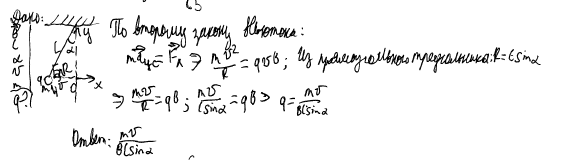 Дано:
B⃗
l
α
v
m
q-?
y
l
α
R
q
m
v⃗
0
x
По второму закону Ньютона:
ma⃗цс = F⃗л ⇒ mv²/R = qvB; Из прямоугольного треугольника: R = l sinα
⇒ mv/R = qB; mv/(l sinα) = qB ⇒ q = mv/(Bl sinα)
Ответ: mv/(Bl sinα)